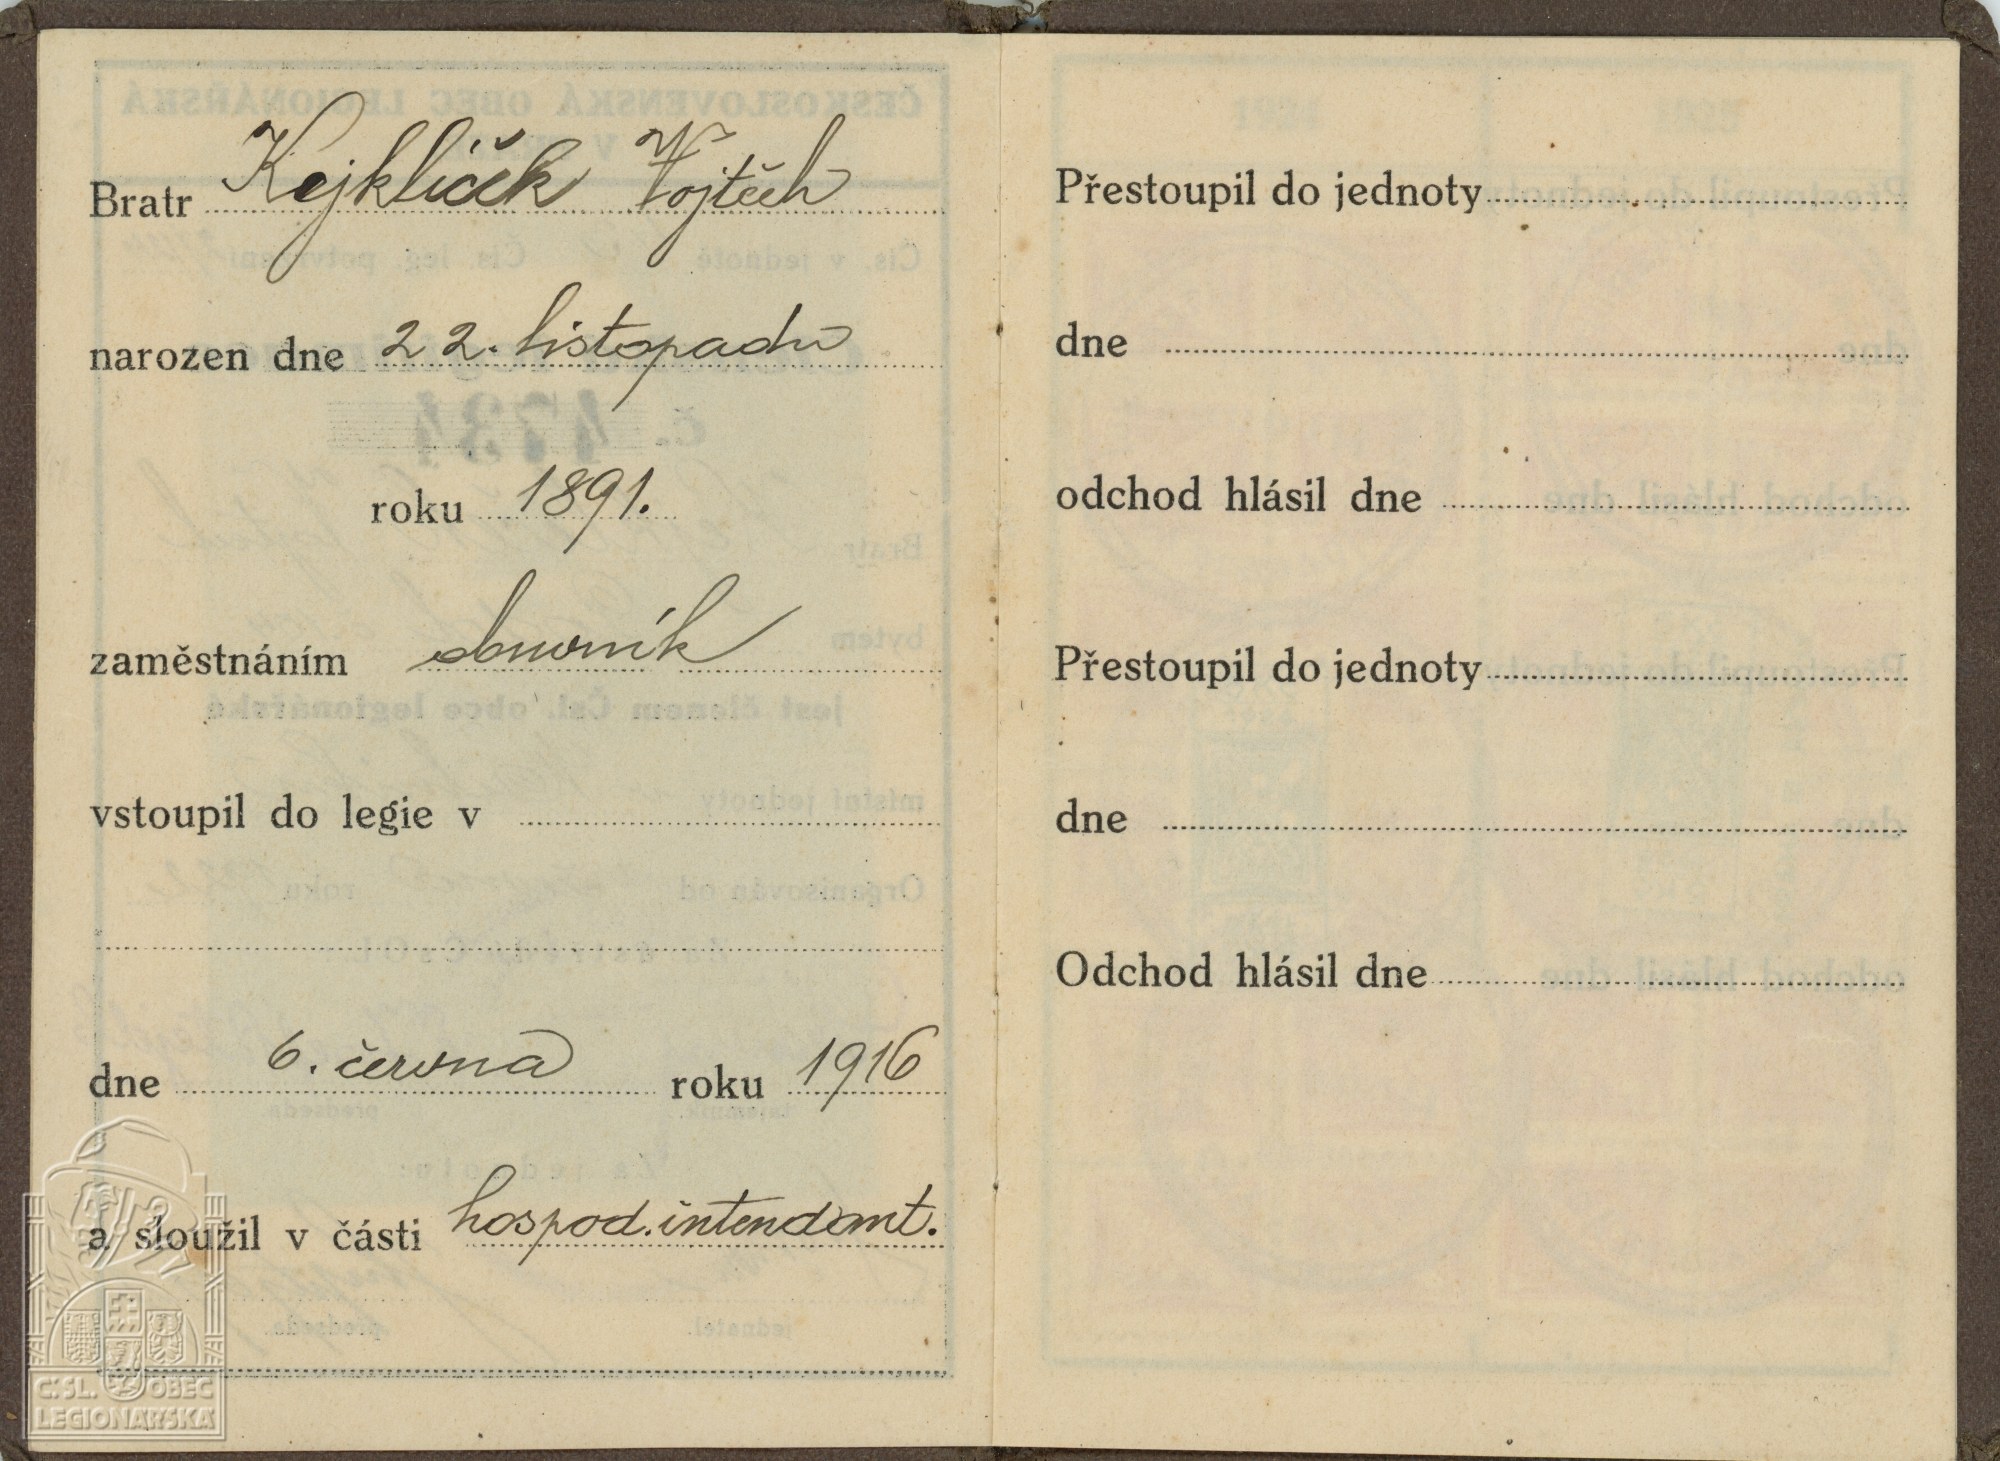 Bratr Kejklíček Vojtěch
narozen dne 22. listopadu
roku 1891.
zaměstnáním obuvník
vstoupil do legie v
dne 6. června roku 1916
a sloužil v části hospod. intendant.
C: SL. OBEC
LEGIONÁŘSKÁ
Přestoupil do jednoty
dne
odchod hlásil dne
Přestoupil do jednoty
dne
Odchod hlásil dne